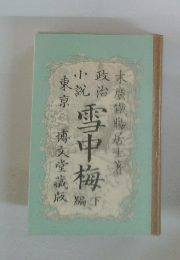 末廣鐵腸居士著
政治
小説
雪中梅
下編
東京
博文堂藏版